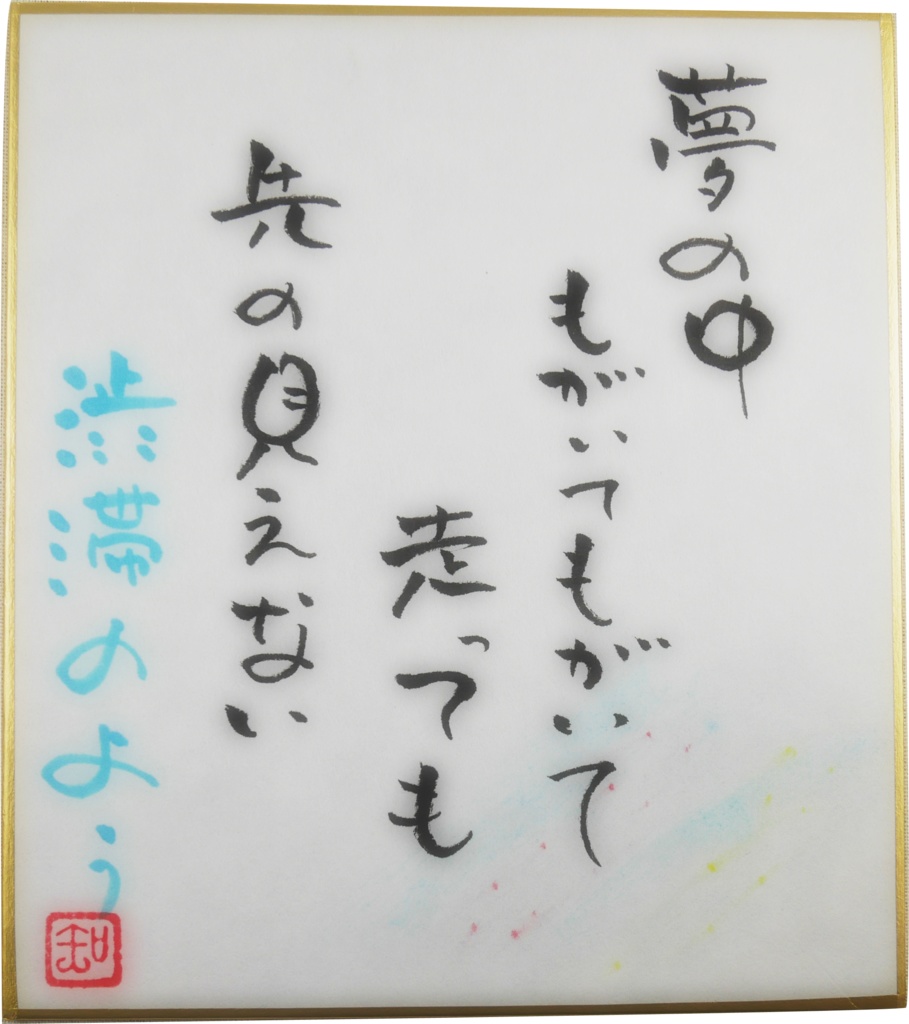 夢の中
もがいてもがいて
走っても
先の見えない
渋滞のよう
知